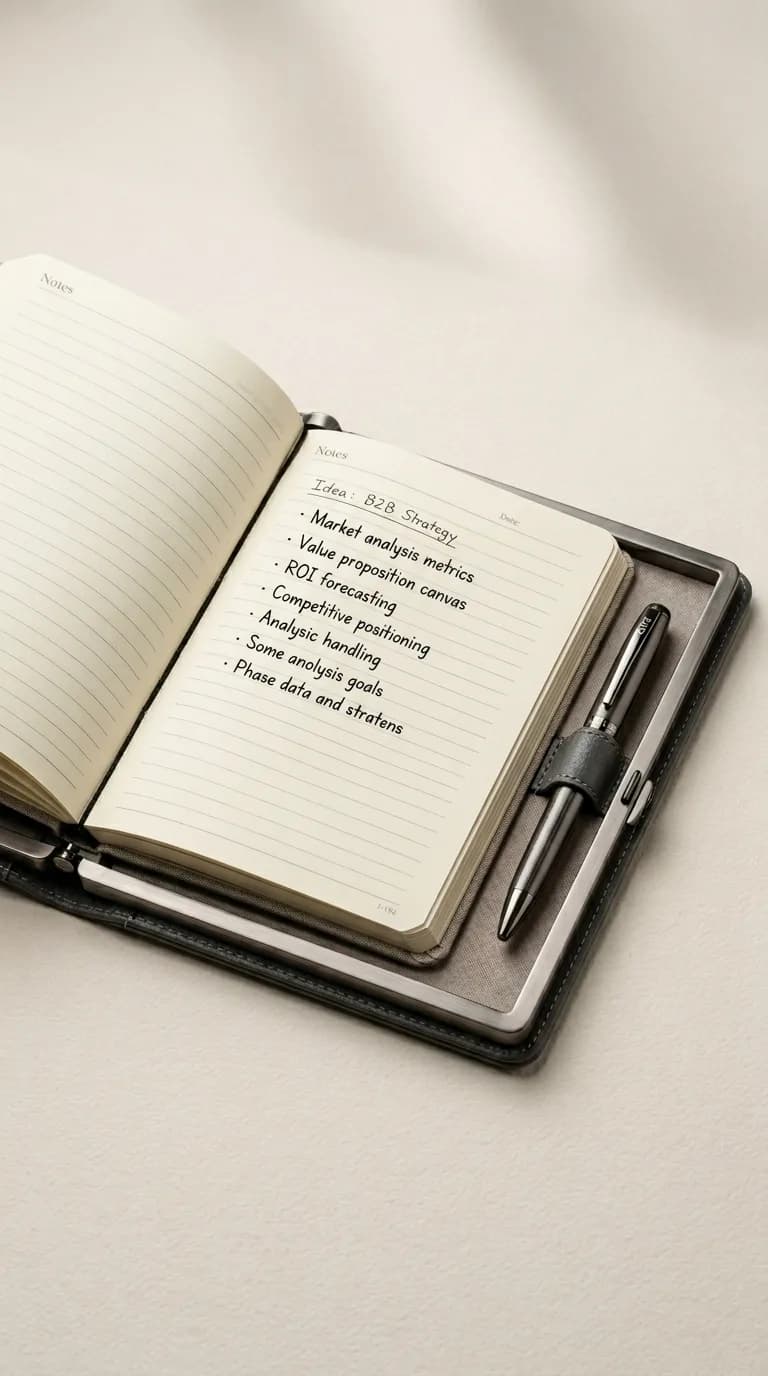 Notes
Notes
Date:
Idea: B2B Strategy
· Market analysis metrics
· Value proposition canvas
· ROI forecasting
· Competitive positioning
· Analysic handling
· Some anolysis goals
· Phase data and stratens